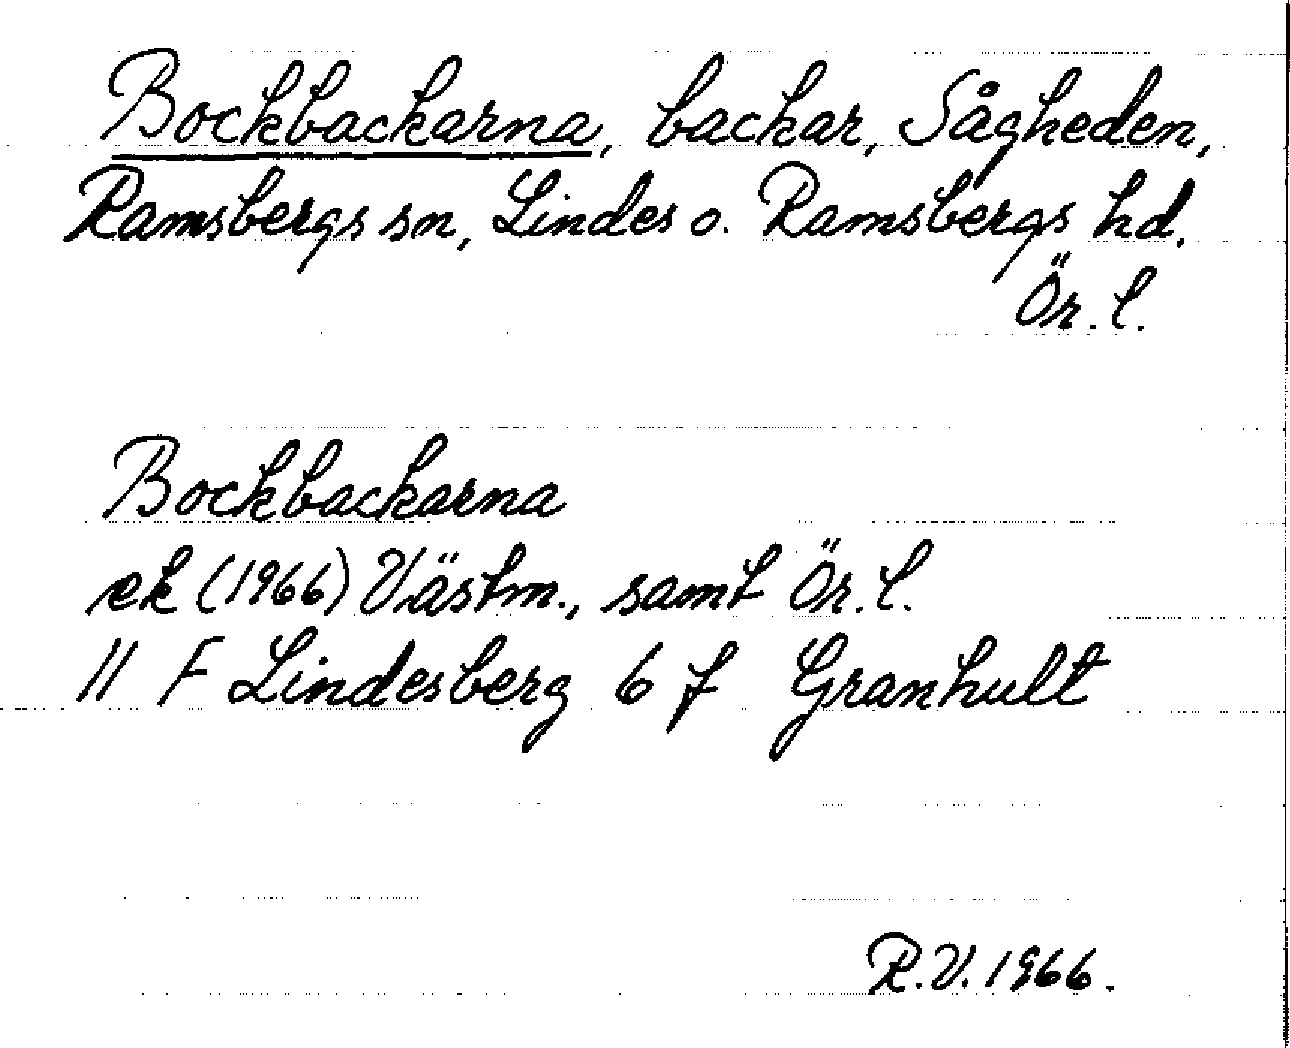 Bockbackarna, backar, Sågheden,
Ramsbergs sn, Lindes o. Ramsbergs hd.
Ör. l.
Bockbackarna
ek (1966) Västm., samt Ör. l.
11 F Lindesberg 6 f Granhult
R.V. 1966.